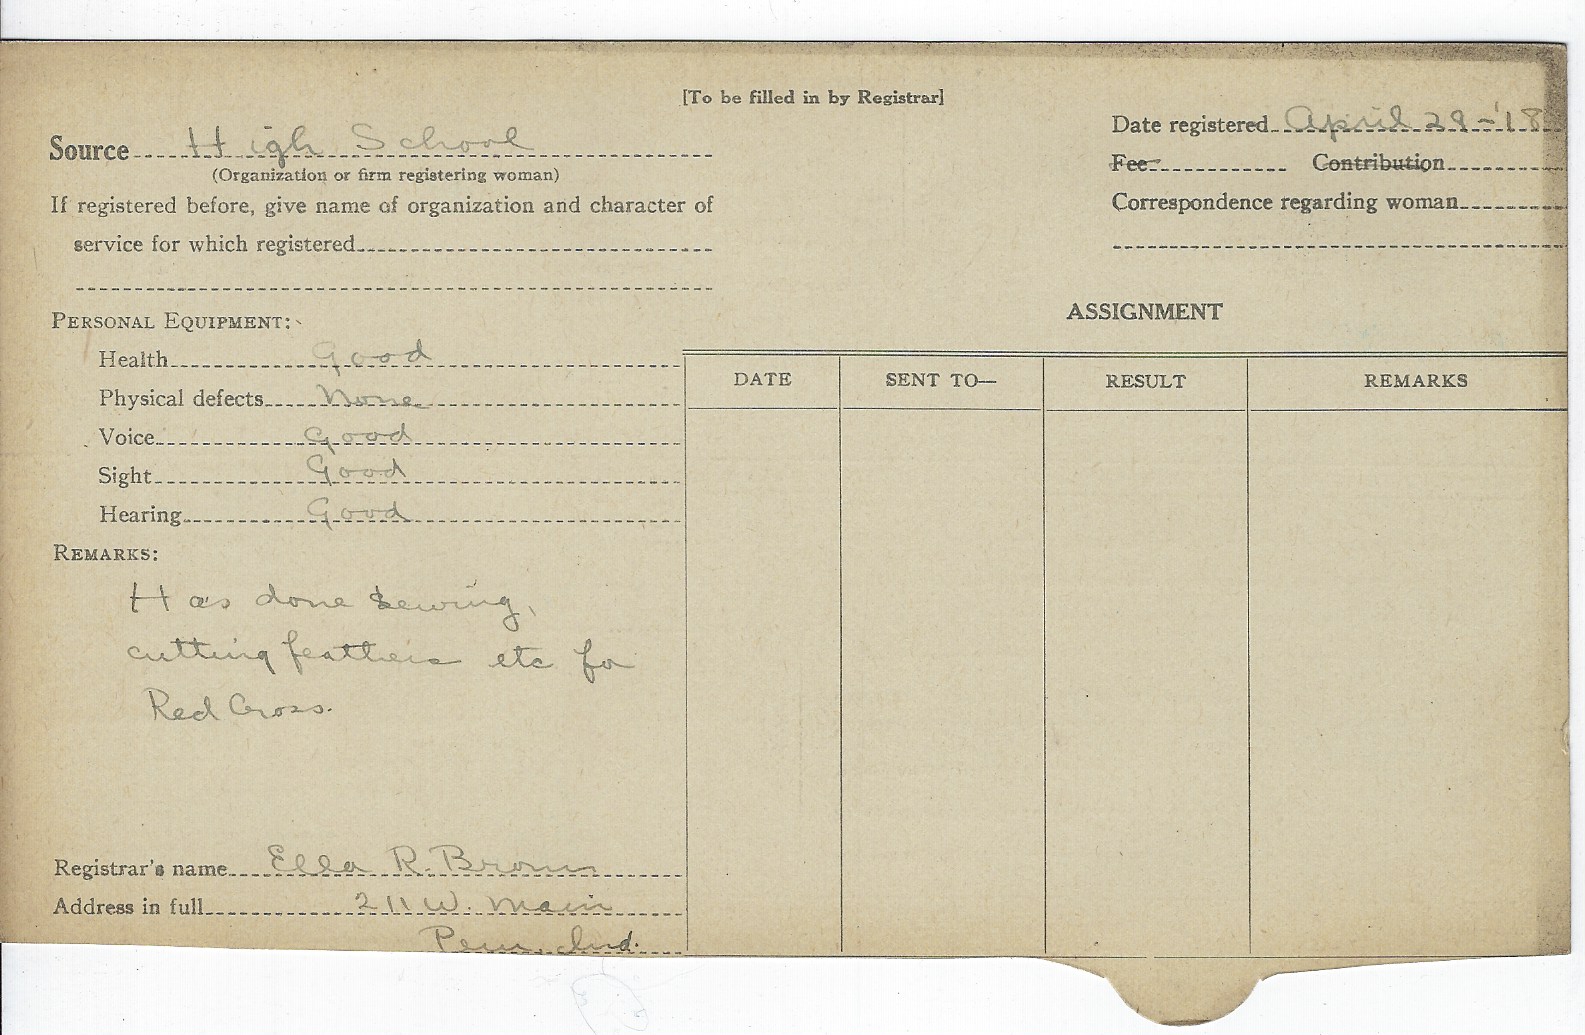 [To be filled in by Registrar]
Source High School
(Organization or firm registering woman)
If registered before, give name of organization and character of
service for which registered
Date registered April 29-'18
Fee Contribution
Correspondence regarding woman
PERSONAL EQUIPMENT:
Health Good
Physical defects None
Voice Good
Sight Good
Hearing Good
REMARKS:
Has done sewing,
cutting feathers etc for
Red Cross.
Registrar's name Ella R. Brown
Address in full 211 W. Main
Peru, Ind.
ASSIGNMENT
DATE SENT TO— RESULT REMARKS